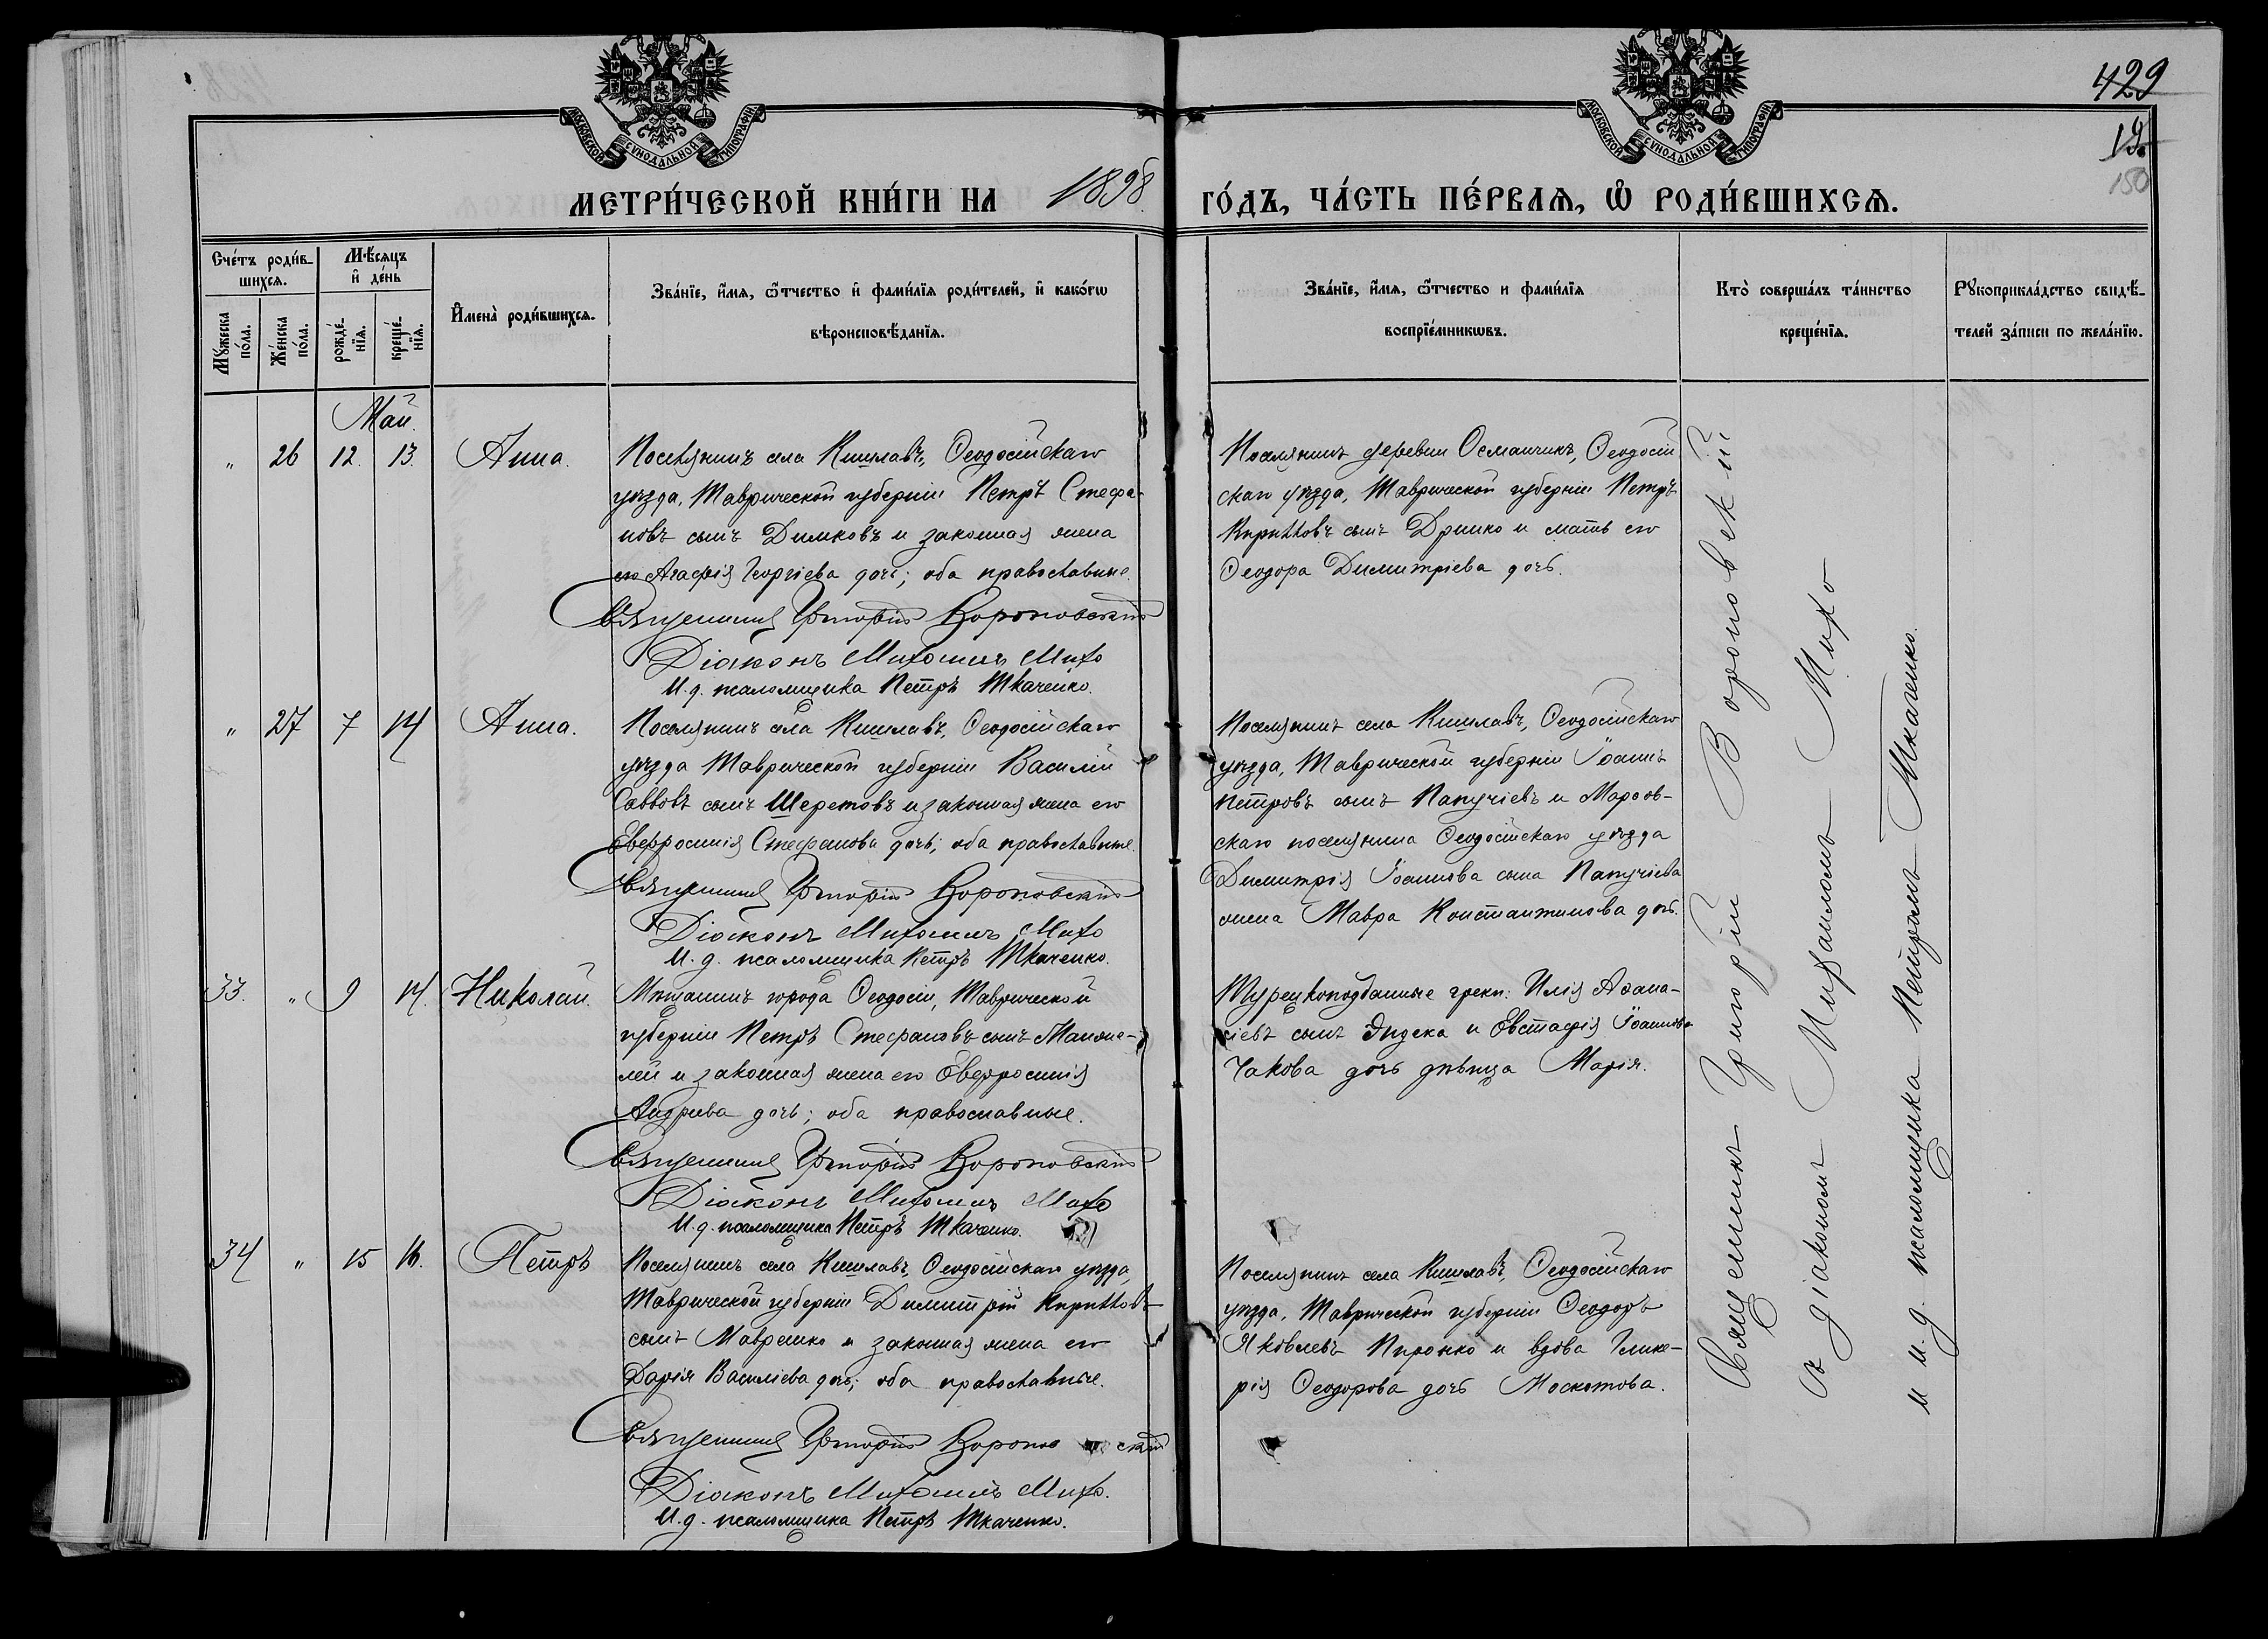 429
19
150
МОСКОВСКОЙ СѴНОДАЛЬНОЙ ТИПОГРАФІИ
МОСКОВСКОЙ СѴНОДАЛЬНОЙ ТИПОГРАФІИ
МЕТРИ́ЧЕСКОЙ КНИ́ГИ НА 1898 ГО́ДЪ, ЧА́СТЬ ПЕ́РВАѦ, Ѡ҆ РОДИ́ВШИХСѦ.
Сче́тъ роди́в-
шихсѧ.
Мꙋ́жеска по́ла.
Же́нска по́ла.
Мѣ́сяцъ
и҆ де́нь
рожде́-
нїѧ.
креще́-
нїѧ.
И҆мена̀ роди́вшихсѧ.
Зва́нїе, и҆́мѧ, ѻ҆́тчество и҆ фами́лїѧ роди́телей, и҆ како́гѡ
вѣроисповѣ́данїѧ.
Зва́нїе, и҆́мѧ, ѻ҆́тчество и фами́лїѧ
воспрїе́мникѡвъ.
Кто̀ соверша́лъ та́инство
креще́нїѧ.
Рꙋкоприкла́дство свидѣ́-
телей за́писи по жела́нїю.
Май.
" 26 12. 13. Анна.
Поселянинъ села Кишлавъ, Ѳеодосійскаго
уѣзда, Таврической губерніи Петръ Стефа-
новъ сынъ Димковъ и законная жена
его Агафія Георгіева дочь; оба православные.
Священникъ Григорій Вороновскій
Діаконъ Михаилъ Михо
И. д. псаломщика Петръ Ткаченко.
Поселянинъ деревни Османчикъ, Ѳеодосій
скаго уѣзда, Таврической губерніи Петръ
Кирилловъ сынъ и мать его
Ѳеодора Димитріева дочь.
" 27 7 14 Анна.
Поселянинъ села Кишлавъ, Ѳеодосійскаго
уѣзда Таврической губерніи Василій
Саввовъ сынъ Шеретовъ и законная жена его
Евфросинія Стефанова дочь; оба православные.
Священникъ Григорій Вороновскій
Діаконъ Михаилъ Михо
И. д. псаломщика Петръ Ткаченко.
Поселянинъ села Кишлавъ, Ѳеодосійскаго
уѣзда, Таврической губерніи Іоаннъ
Петровъ сынъ Папучіевъ и
скаго поселянина Ѳеодосійскаго уѣзда
Димитрія Іоаннова сына Папучіева
жена Мавра Константинова дочь.
33. " 9 14. Николай.
Мѣщанинъ города Ѳеодосіи, Таврической
губерніи Петръ Стефановъ сынъ
и законная жена его Евфросинія
Андреева дочь; оба православные.
Священникъ Григорій Вороновскій
Діаконъ Михаилъ Михо
И. д. псаломщика Петръ Ткаченко.
Турецкоподданные греки: Илія Аѳана-
сіевъ сынъ и Евстафія Іоаннова
Чакова дочь дѣвица Марія.
34 " 15 16. Петръ
Поселянинъ села Кишлавъ, Ѳеодосійскаго уѣзда,
Таврической губерніи Димитрій Кирилловъ
сынъ и законная жена его
Дарія Василіева дочь; оба православные.
Священникъ Григорій Вороновскій
Діаконъ Михаилъ Михо.
И. д. псаломщика Петръ Ткаченко.
Поселянинъ села Кишлавъ, Ѳеодосійскаго
уѣзда, Таврической губерніи Ѳеодоръ
Яковлевъ Пиронко и вдова Глике-
рія Ѳеодорова дочь Москотова.
Священникъ Григорій Вороновскій
съ діакономъ Михаиломъ Михо
и и. д. псаломщика Петромъ Ткаченко.